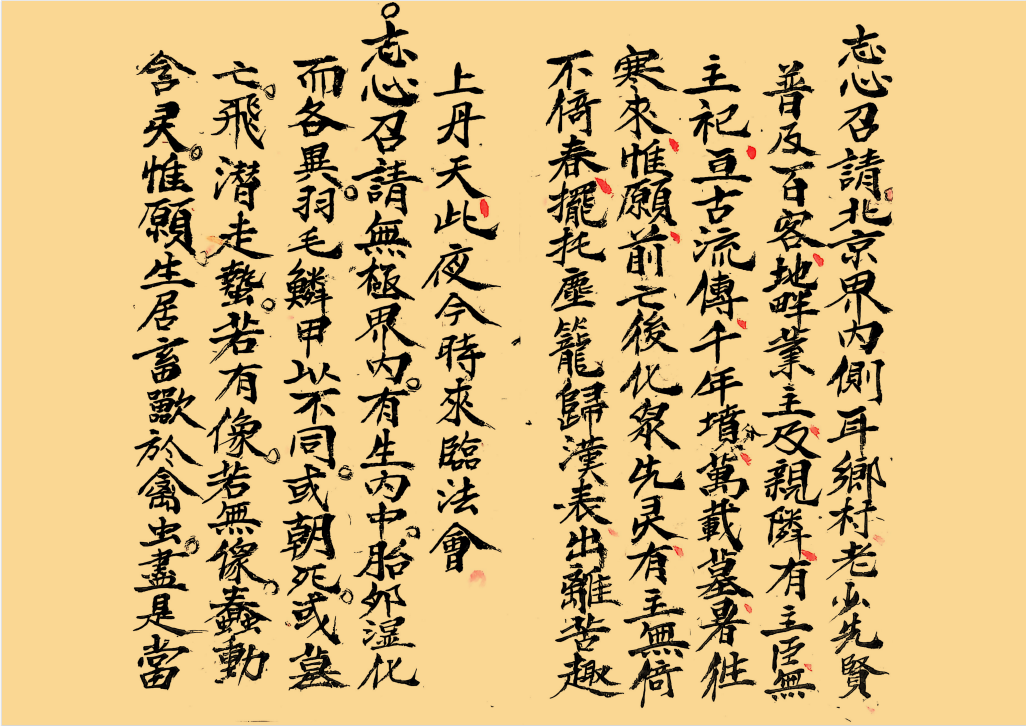 志心召請北京界内側耳鄉村老少先賢
普及百客地畔業主及親隣有主臣無
主祀亘古流傳千年墳萬載墓暑徃
寒來惟願前亡後化泉先灵有主無倚
不倚春擺托塵籠歸漢表出離苦趣
上丹天此夜今時來臨法會
志心召請無極界内有生内中胎外湿化
而各異羽毛鱗甲以不同或朝死或墓
亡飛潜走蟄若有像若無像蠢動
含灵惟願生居畜獸於禽虫盡是當